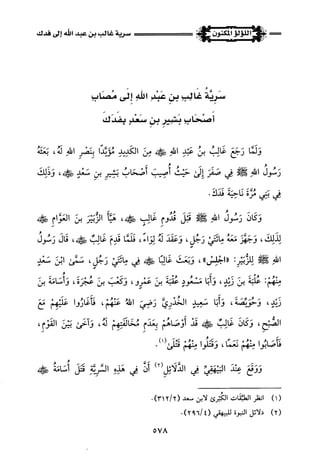 اللؤلؤ المكنون
سرية غالب بن عبد الله إلى فدك
سَرِيَّةُ غَالِبِ بنِ عَبْدِ اللهِ إلَى مُصَابِ
أَصْحَابِ بَشِيرِ بنِ سَعْدٍ بِفَدَكَ
وَلَمَّا رَجَعَ غَالِبُ بنُ عَبْدِ اللهِ ﷺ مِنَ الكَدِيدِ مُؤَيَّدًا بِنَصْرِ اللهِ لَهُ، بَعَثَهُ
رَسُولُ اللهِ ﷺ فِي صَفَرَ إلَى حَيْثُ أُصِيبَ أَصْحَابُ بَشِيرِ بنِ سَعْدٍ ﷺ، وَذَلِكَ
فِي بَنِي مُرَّةَ نَاحِيَةَ فَدَكَ.
وَكَانَ رَسُولُ اللهِ ﷺ قَبْلَ قُدُومِ غَالِبٍ ﷺ، هَيَّأَ الزُّبَيْرَ بنَ العَوَّامِ ﷺ
لِذَلِكَ، وَجَهَّزَ مَعَهُ مِائَتَيْ رَجُلٍ، وَعَقَدَ لَهُ لِوَاءً، فَلَمَّا قَدِمَ غَالِبٌ ﷺ، قَالَ رَسُولُ
اللهِ ﷺ لِلزُّبَيْرِ: «اجْلِسْ»، وَبَعَثَ غَالِبًا ﷺ فِي مِائَتَيْ رَجُلٍ، سَمَّى ابْنُ سَعْدٍ
مِنْهُمْ: عُلْبَةَ بنَ زَيْدٍ، وَأَبَا مَسْعُودٍ عُقْبَةَ بنَ عَمْرٍو، وَكَعْبَ بنَ عُجْرَةَ، وَأُسَامَةَ بنَ
زَيْدٍ، وَحُوَيِّصَةَ، وَأَبَا سَعِيدٍ الخُدْرِيَّ رَضِيَ اللهُ عَنْهُمْ، فَأَغَارُوا عَلَيْهِمْ مَعَ
الصُّبْحِ، وَكَانَ غَالِبٌ ﷺ قَدْ أَوْصَاهُمْ بِعَدَمِ مُخَالَفَتِهِمْ لَهُ، وَآخَى بَيْنَ القَوْمِ،
فَأَصَابُوا مِنْهُمْ نَعَمًا، وَقَتَلُوا مِنْهُمْ قَتْلَى(١).
وَوَقَعَ عِنْدَ البَيْهَقِيِّ فِي الدَّلَائِلِ(٢) أَنَّ فِي هَذِهِ السَّرِيَّةِ قَتَلَ أُسَامَةُ ﷺ
(١) انظر الطَّبَقَات الكُبْرى لابن سعد (٣١٢/٢).
(٢) دلائل النبوة للبيهقي (٢٩٦/٤).
٥٧٨